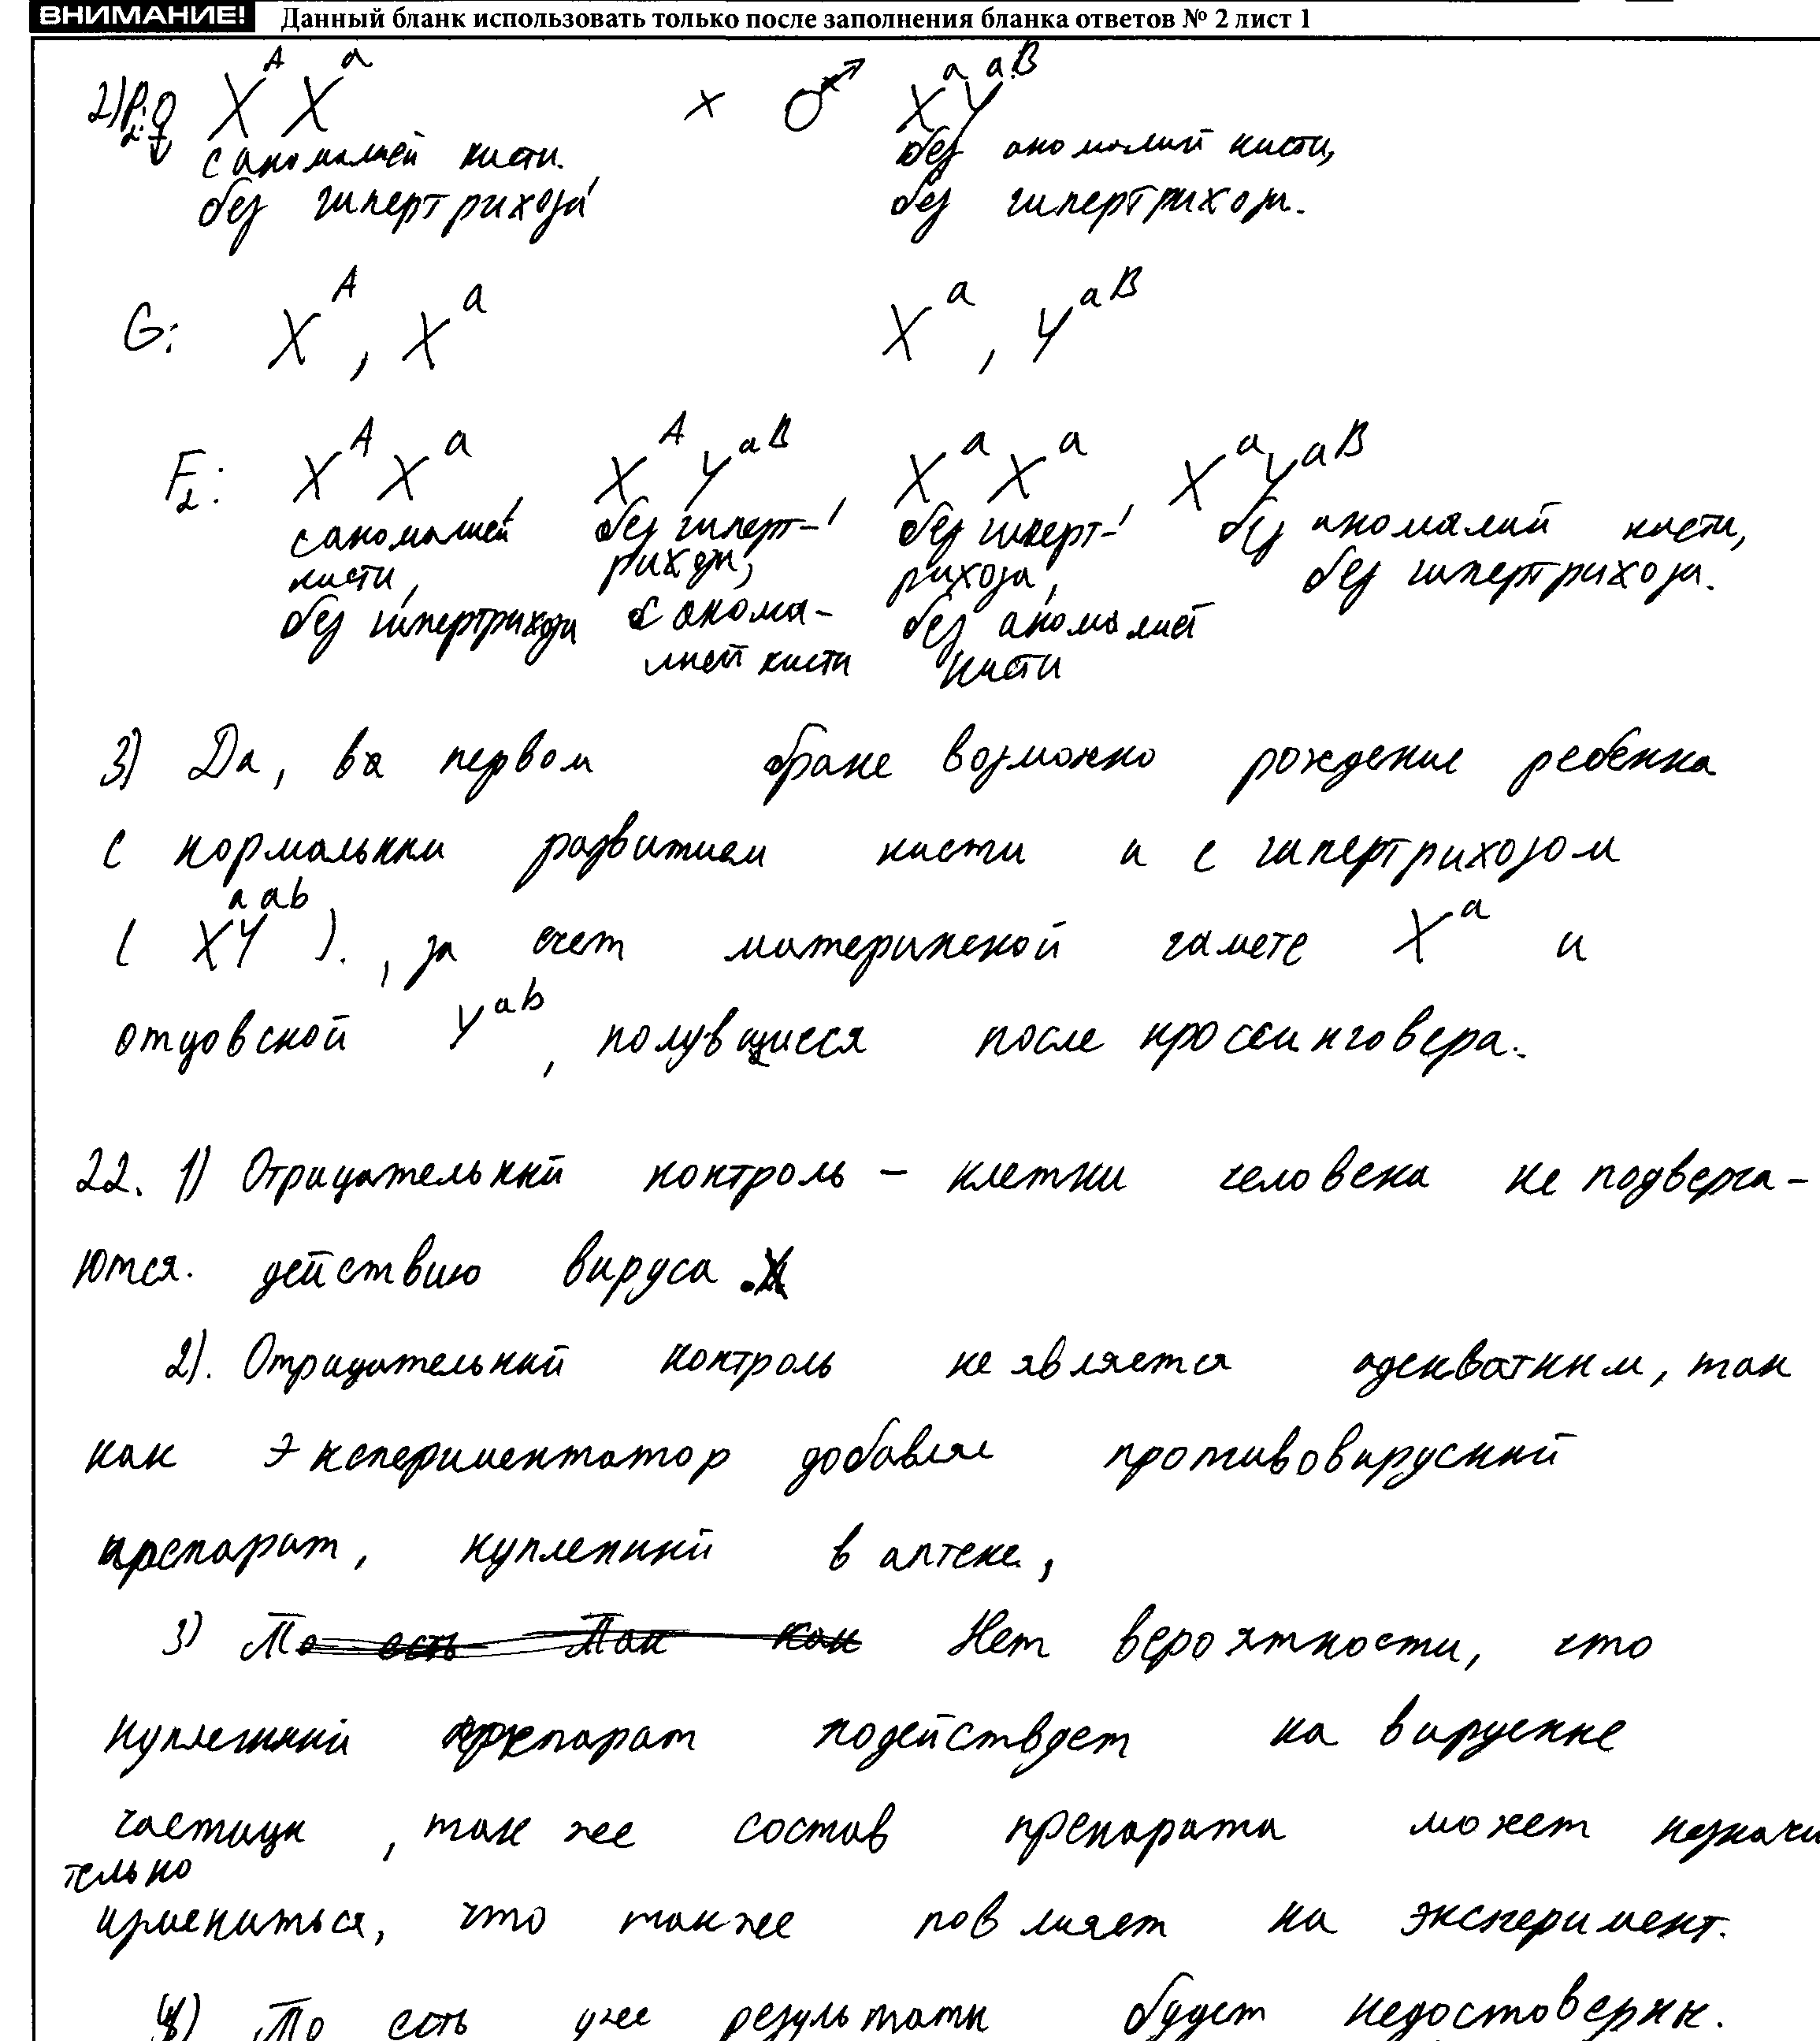 ВНИМАНИЕ! Данный бланк использовать только после заполнения бланка ответов № 2 лист 1
2) P₂: ♀ X^A X^a × ♂ X^a Y^aB
с аномалией кисти. без аномалий кисти,
без гипертрихоза без гипертрихоза.
G: X^A, X^a X^a, Y^aB
F₂: X^A X^a, X^A Y^aB, X^a X^a, X^a Y^aB
с аномалией без гиперт- без гиперт- без аномалий кисти,
кисти, рихоза, рихоза, без гипертрихоза.
без гипертрихоза с анома- без аномалией
лией кисти кисти
3) Да, в первом браке возможно рождение ребенка
с нормальным развитием кисти и с гипертрихозом
(X^a Y^ab)., за счет материнской гамете X^a и
отцовской Y^ab, полувщиеся после кроссинговера.
22. 1) Отрицательный контроль – клетки человека не подверга-
ются. действию вируса.
2). Отрицательный контроль не является адекватным, так
как экспериментатор добавляе противовирусный
препарат, купленный в аптеке,
3) То есть Так как Нет вероятности, что
купленный препарат подействует на вирусные
частицы, так же состав препарата может незначи
тельно
измениться, что также повлияет на эксперимент.
4) То есть уже результаты будет недостоверны.